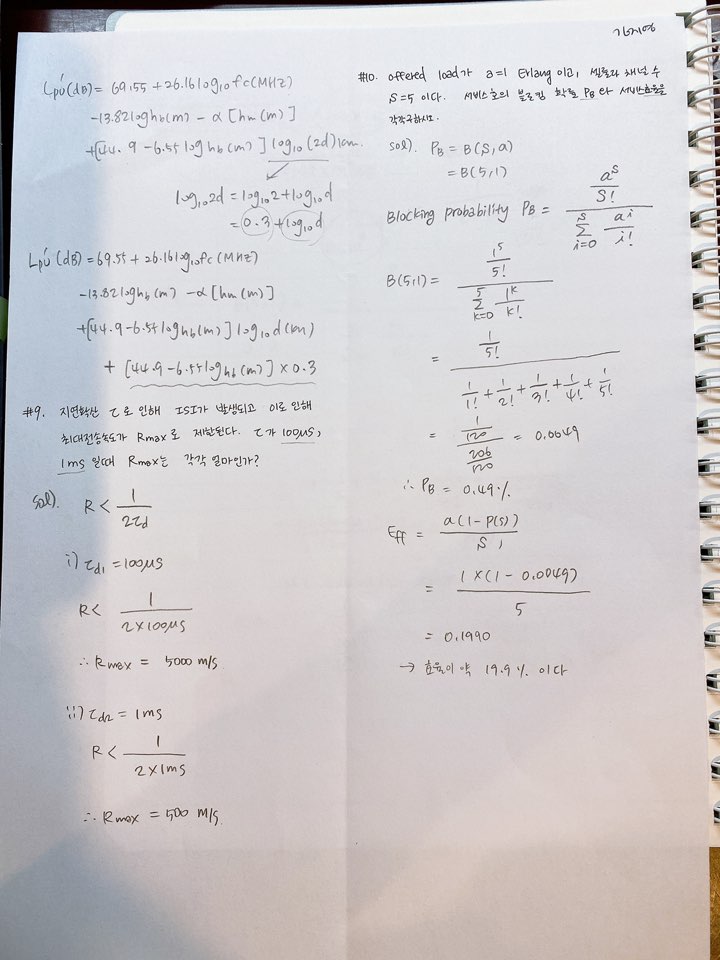 Lpú(dB) = 69.55 + 26.16 log10 fc (MHz)
-13.82 log hb(m) - α [hm(m)]
+[44.9 - 6.55 log hb(m)] log10 (2d) km.
log10 2d = log10 2 + log10 d
= 0.3 + log10 d
Lpú (dB) = 69.55 + 26.16 log10 fc (MHz)
-13.82 log hb(m) - α [hm(m)]
+[44.9 - 6.55 log hb(m)] log10 d (km)
+ [44.9 - 6.55 log hb(m)] × 0.3
#9. 지연확산 τ로 인해 ISI가 발생되고 이로 인해
최대전송속도가 Rmax로 제한된다. τ가 100μs,
1ms 일때 Rmax는 각각 얼마인가?
sol). R < 1 / 2τd
i) τd1 = 100μs
R < 1 / 2×100μs
∴ Rmax = 5000 m/s
ii) τd2 = 1ms
R < 1 / 2×1ms
∴ Rmax = 500 m/s.
#10. offered load가 a=1 Erlang이고, 셀룰라 채널 수
S=5 이다. 서비스호의 블로킹 확률 PB와 서비스효율을
각각구하시오.
sol). PB = B(S, a)
= B(5, 1)
Blocking probability PB = (a^S / S!) / (Σ i=0 S a^i / i!)
B(5,1) = (1^5 / 5!) / (Σ k=0 5 1^k / k!)
= (1 / 5!) / (1/1! + 1/2! + 1/3! + 1/4! + 1/5!)
= (1/120) / (206/120) = 0.0049
∴ PB = 0.49%
Eff = a(1 - P(s)) / S,
= 1×(1 - 0.0049) / 5
= 0.1990
→ 효율이 약 19.9% 이다